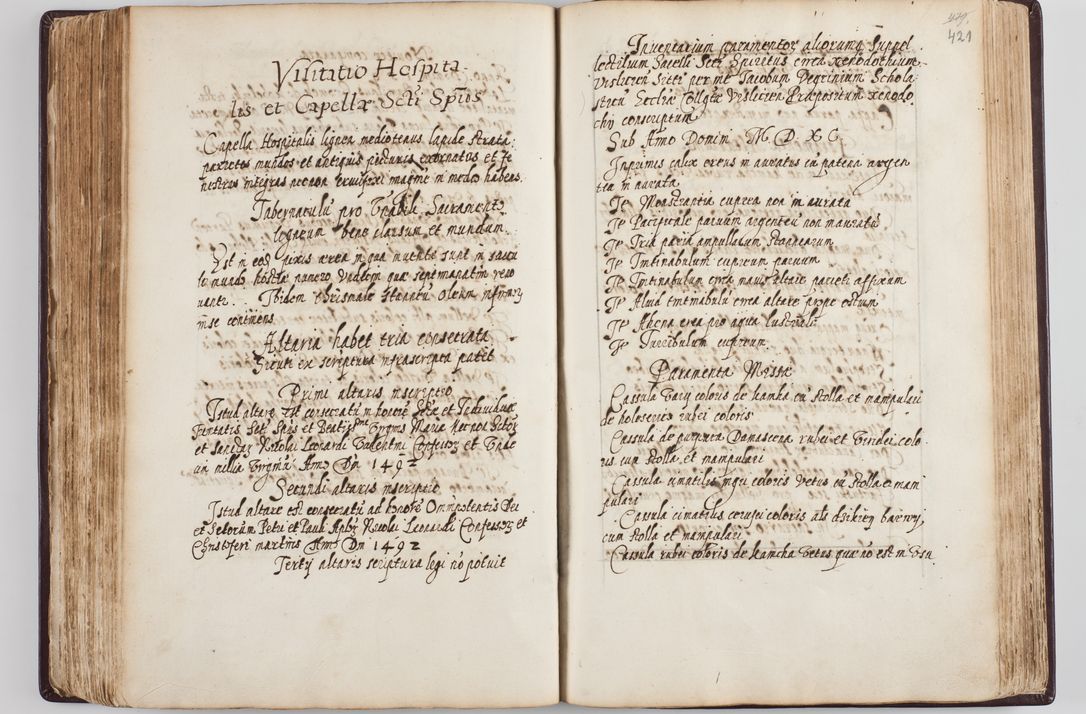 Visitatio Hospita-
lis et Capellæ Scti Spũs
Capella Hospitalis lignea mediocris lapide strata
parietes mundos et antiquis picturis exornatos et fe
nestras integras Crucifixi magine in medio habens.
Tabernaculũ pro Sacramento
ligneum bene clausum et mundum
Est in eod pixis ærea in qua sunt in saccu
lo mundo hostiæ numero quæ septimanatim reno
vantr. Ibidem Chrismale stanneũ oleum infirmorũ
in se continens
Altaria habet tria consecrata
Sicuti ex scriptura infrascripta patet
Primi altaris inscriptio
Istud altare est consecratũ in honorẽ Sctæ et Individuæ
Trinitatis Scti Spũs et Beatissmæ Virginis Mariæ
et Nicolai Leonardi Valentini Confessorũ et Unde
cim millia Virginũ Anno Dni 1492
Secundi altaris inscriptio
Istud altare est consecratũ ad honorẽ Omnipotentis Dei
et Sctorum Petri et Pauli Aplorũ Nicolai Leonardi Confessorũ et
Christoferi martiris Anno Dni 1492
Tertij altaris scriptura legi nõ potuit
421
Inventarium paramentorũ aliorumq suppel
lectilium Sacelli Scti Spiritus circa xenodochium
Vislicien siti per me Jacobum Schola
sticũ Eccliæ Collgtæ Vislicien Præpositum xenodo
chij conscriptum
Sub Anno Domini M D X C
Inprimis calix ereus in auratus cũ patena argen
tea in aurata
Itẽ Monstrantia cuprea non in aurata
Itẽ Pacificale parvum argenteũ non inauratũ
Itẽ Tria paria ampullarum stannearum
Itẽ Tintinabulum cupreum parvum
Itẽ Tintinabulum circa maius altare parieti affixum
Itẽ Aliud tintinabulũ circa altare prope ostium
Itẽ Ahena erea pro aqua lustrali
Itẽ Turribulum cupreum
Paramenta Missæ
Cassula varij coloris de kamha cũ stolla et manipulari
de holosericio rubei coloris
Cassula de purpura Damascena rubei et viridis colo
ris cum stolla et manipulari
Cassula nigri coloris vetus cũ stolla et mani
pulari
Cassula coloris als barwy,
cum stolla et manipulari
Cassula rubei coloris de kamcha vetus quæ nõ est in usu